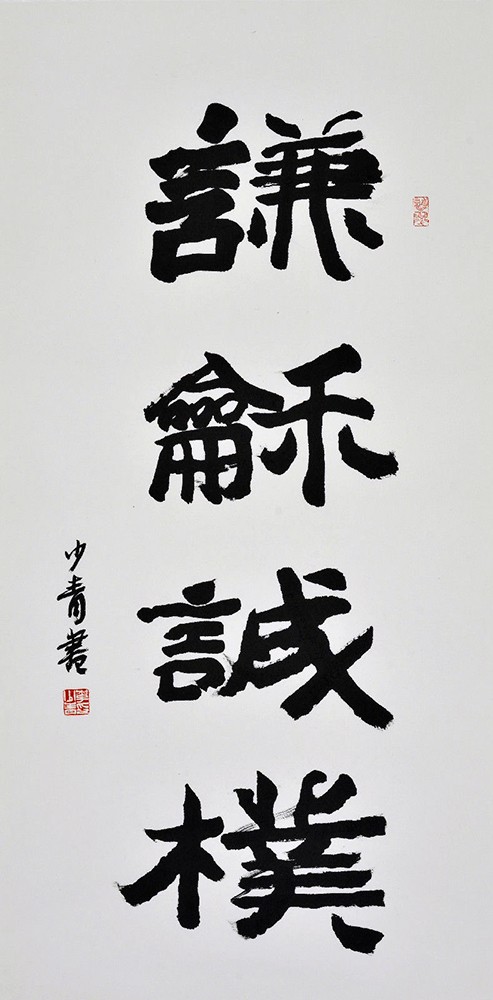 謙龢誠樸
少青書